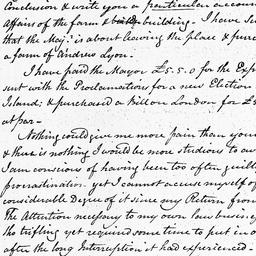 Conclusion & write you a particular accoun
Affairs of the farm & building. I have Su
that the Maj. is about leaving the place & purc
a farm of Andrew Lyon.
I have paid the Mayor £5.5.0 for the Exp
sent with the Proclamations for a new Election
Island; & purchased a Bill on London for £5
at par—
Nothing could give me more pain than your
& there is nothing I would be more studious to av
I am conscious of having been too often guilty
procrastination. yet I cannot accuse myself of
considerable Degree of it since my Return from
The Attention necessary to my own law business
tho trifling yet required some time to put in o
after the long Interruption it had experienced.—